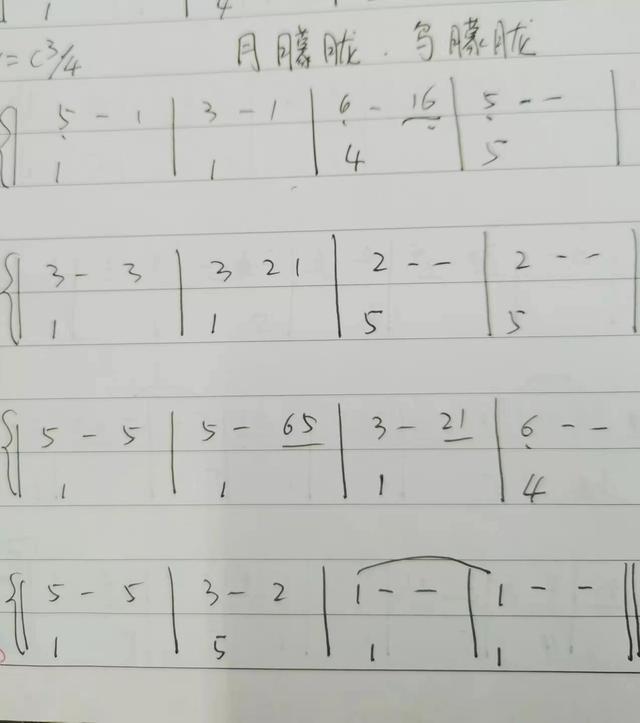 1 | 4
= C 3/4 月朦胧.鸟朦胧
5̣ - 1 | 3 - 1 | 6̣ - 16̣ | 5̣ - - |
1 1 4 5
3 - 3 | 3 2 1 | 2 - - | 2 - - |
1 1 5 5
5 - 5 | 5 - 65 | 3 - 21 | 6̣ - - |
1 1 1 4
5 - 5 | 3 - 2 | 1 - - | 1 - - ||
1 5 1 1